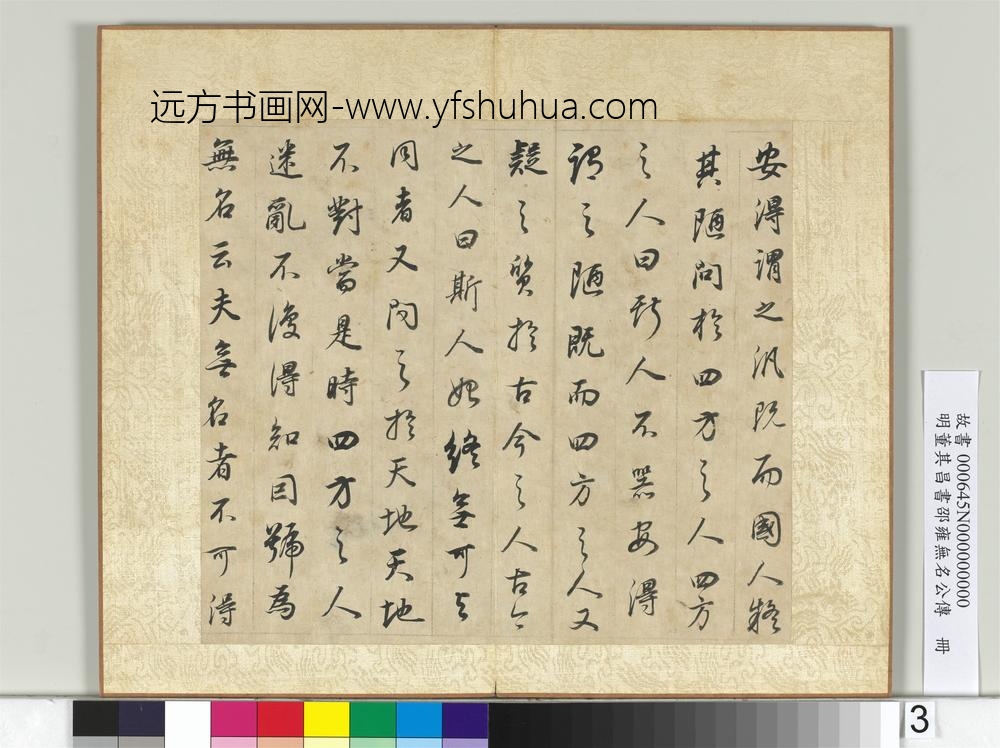 远方书画网-www.yfshuhua.com
安得謂之汎既而國人疑
其陋問於四方之人四方
之人曰斯人不器安得
謂之陋既而四方之人又
疑之質於古今之人古今
之人曰斯人始終無可與
同者又問之於天地天地
不對當是時四方之人
迷亂不復得知因號為
無名公夫無名者不可得
故書 000645N000000000
明董其昌書邵雍無名公傳 冊
3